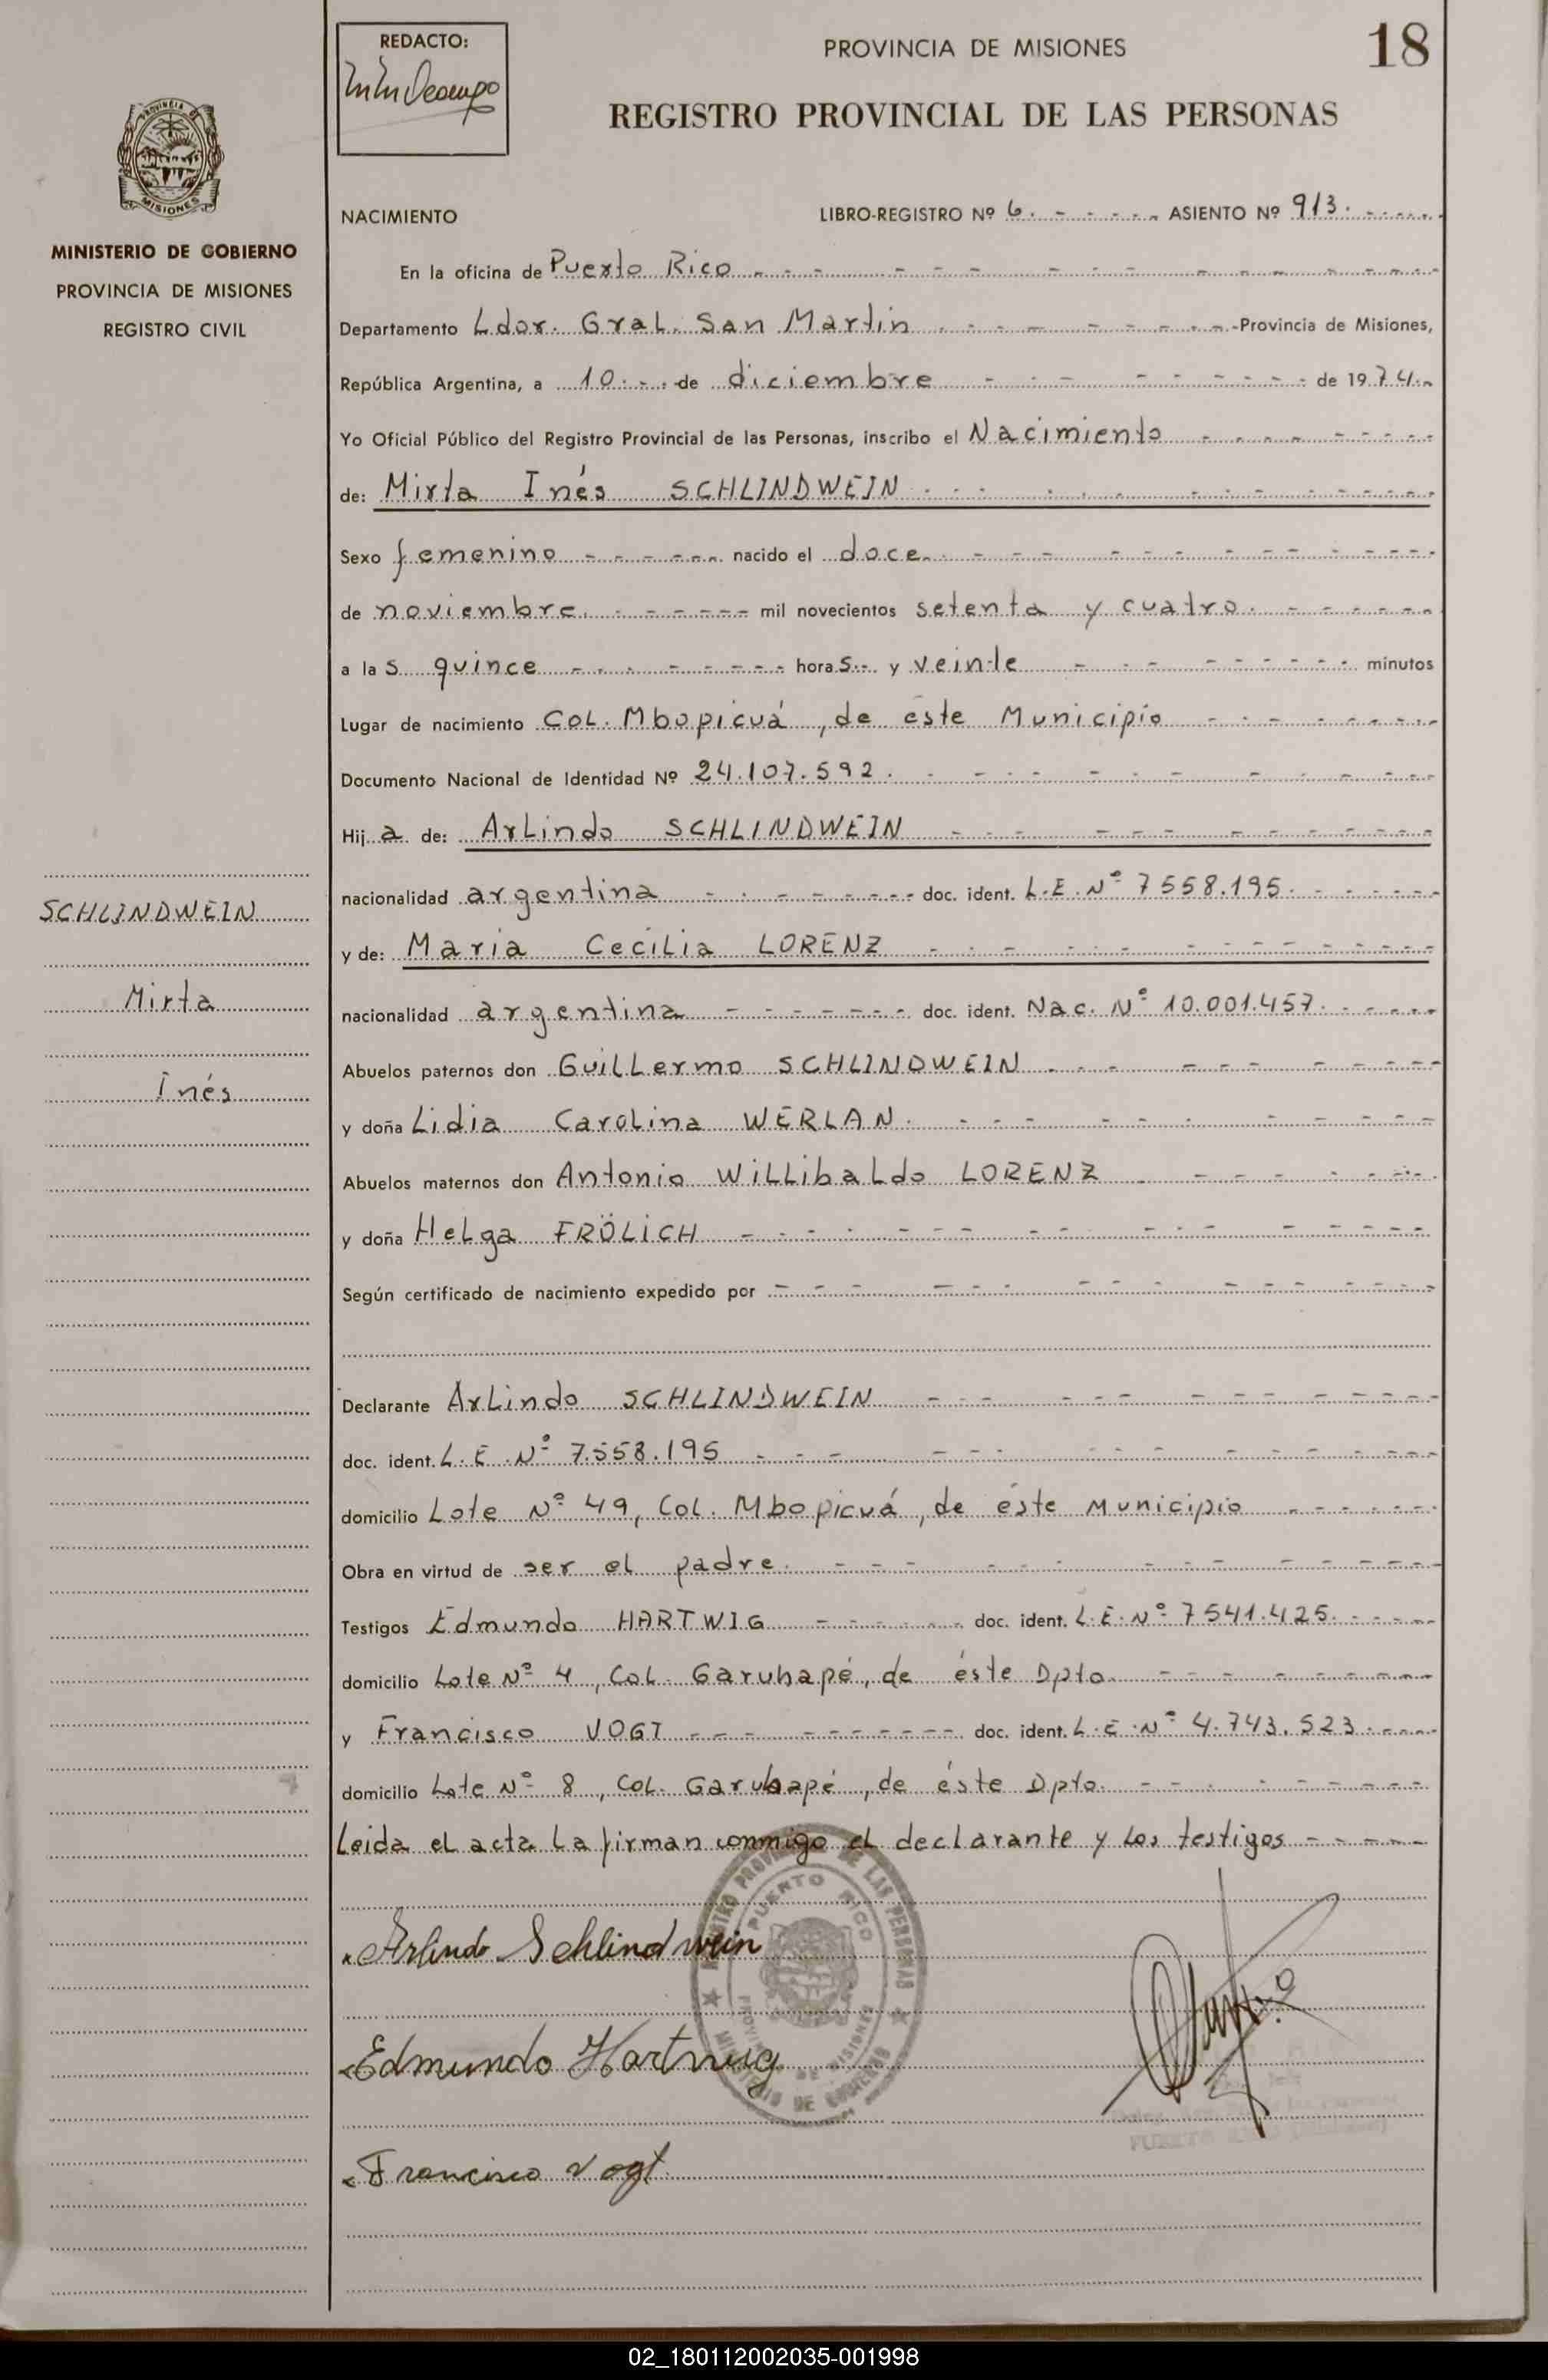 REDACTO:
PROVINCIA DE MISIONES
18
REGISTRO PROVINCIAL DE LAS PERSONAS
MISIONES
MINISTERIO DE GOBIERNO
PROVINCIA DE MISIONES
REGISTRO CIVIL
NACIMIENTO LIBRO-REGISTRO Nº 6. ASIENTO Nº 913.
En la oficina de Puerto Rico
Departamento Ldor. Gral. San Martin Provincia de Misiones,
República Argentina, a 10 de diciembre de 1974
Yo Oficial Público del Registro Provincial de las Personas, inscribo el Nacimiento
de: Mirta Inés SCHLINDWEIN
Sexo femenino nacido el doce
de noviembre mil novecientos setenta y cuatro
a las quince horas y veinte minutos
Lugar de nacimiento Col. Mbopicuá, de éste Municipio
Documento Nacional de Identidad Nº 24.107.592.
Hija de: Arlindo SCHLINDWEIN
nacionalidad argentina doc. ident. L.E. Nº 7558.195.
y de: Maria Cecilia LORENZ
nacionalidad argentina doc. ident. Nac. Nº 10.001.457.
Abuelos paternos don Guillermo SCHLINDWEIN
y doña Lidia Carolina WERLAN.
Abuelos maternos don Antonio Willibaldo LORENZ
y doña Helga FRÖLICH
Según certificado de nacimiento expedido por
Declarante Arlindo SCHLINDWEIN
doc. ident. L.E. Nº 7.558.195
domicilio Lote Nº 49, Col. Mbopicuá, de éste Municipio
Obra en virtud de ser el padre.
Testigos Edmundo HARTWIG doc. ident. L.E. Nº 7541.425.
domicilio Lote Nº 4, Col. Garuhapé, de éste Dpto.
y Francisco VOGT doc. ident. L.E. Nº 4.743.523.
domicilio Lote Nº 8, Col. Garuhapé, de éste Dpto.
Leida el acta la firman conmigo el declarante y los testigos
SCHLINDWEIN
Mirta
Inés
REGISTRO PROVINCIAL DE LAS PERSONAS
PUERTO RICO
PROVINCIA DE MISIONES
MINISTERIO DE GOBIERNO
Arlindo Schlindwein
Edmundo Hartwig
Francisco Vogt
02_180112002035-001998